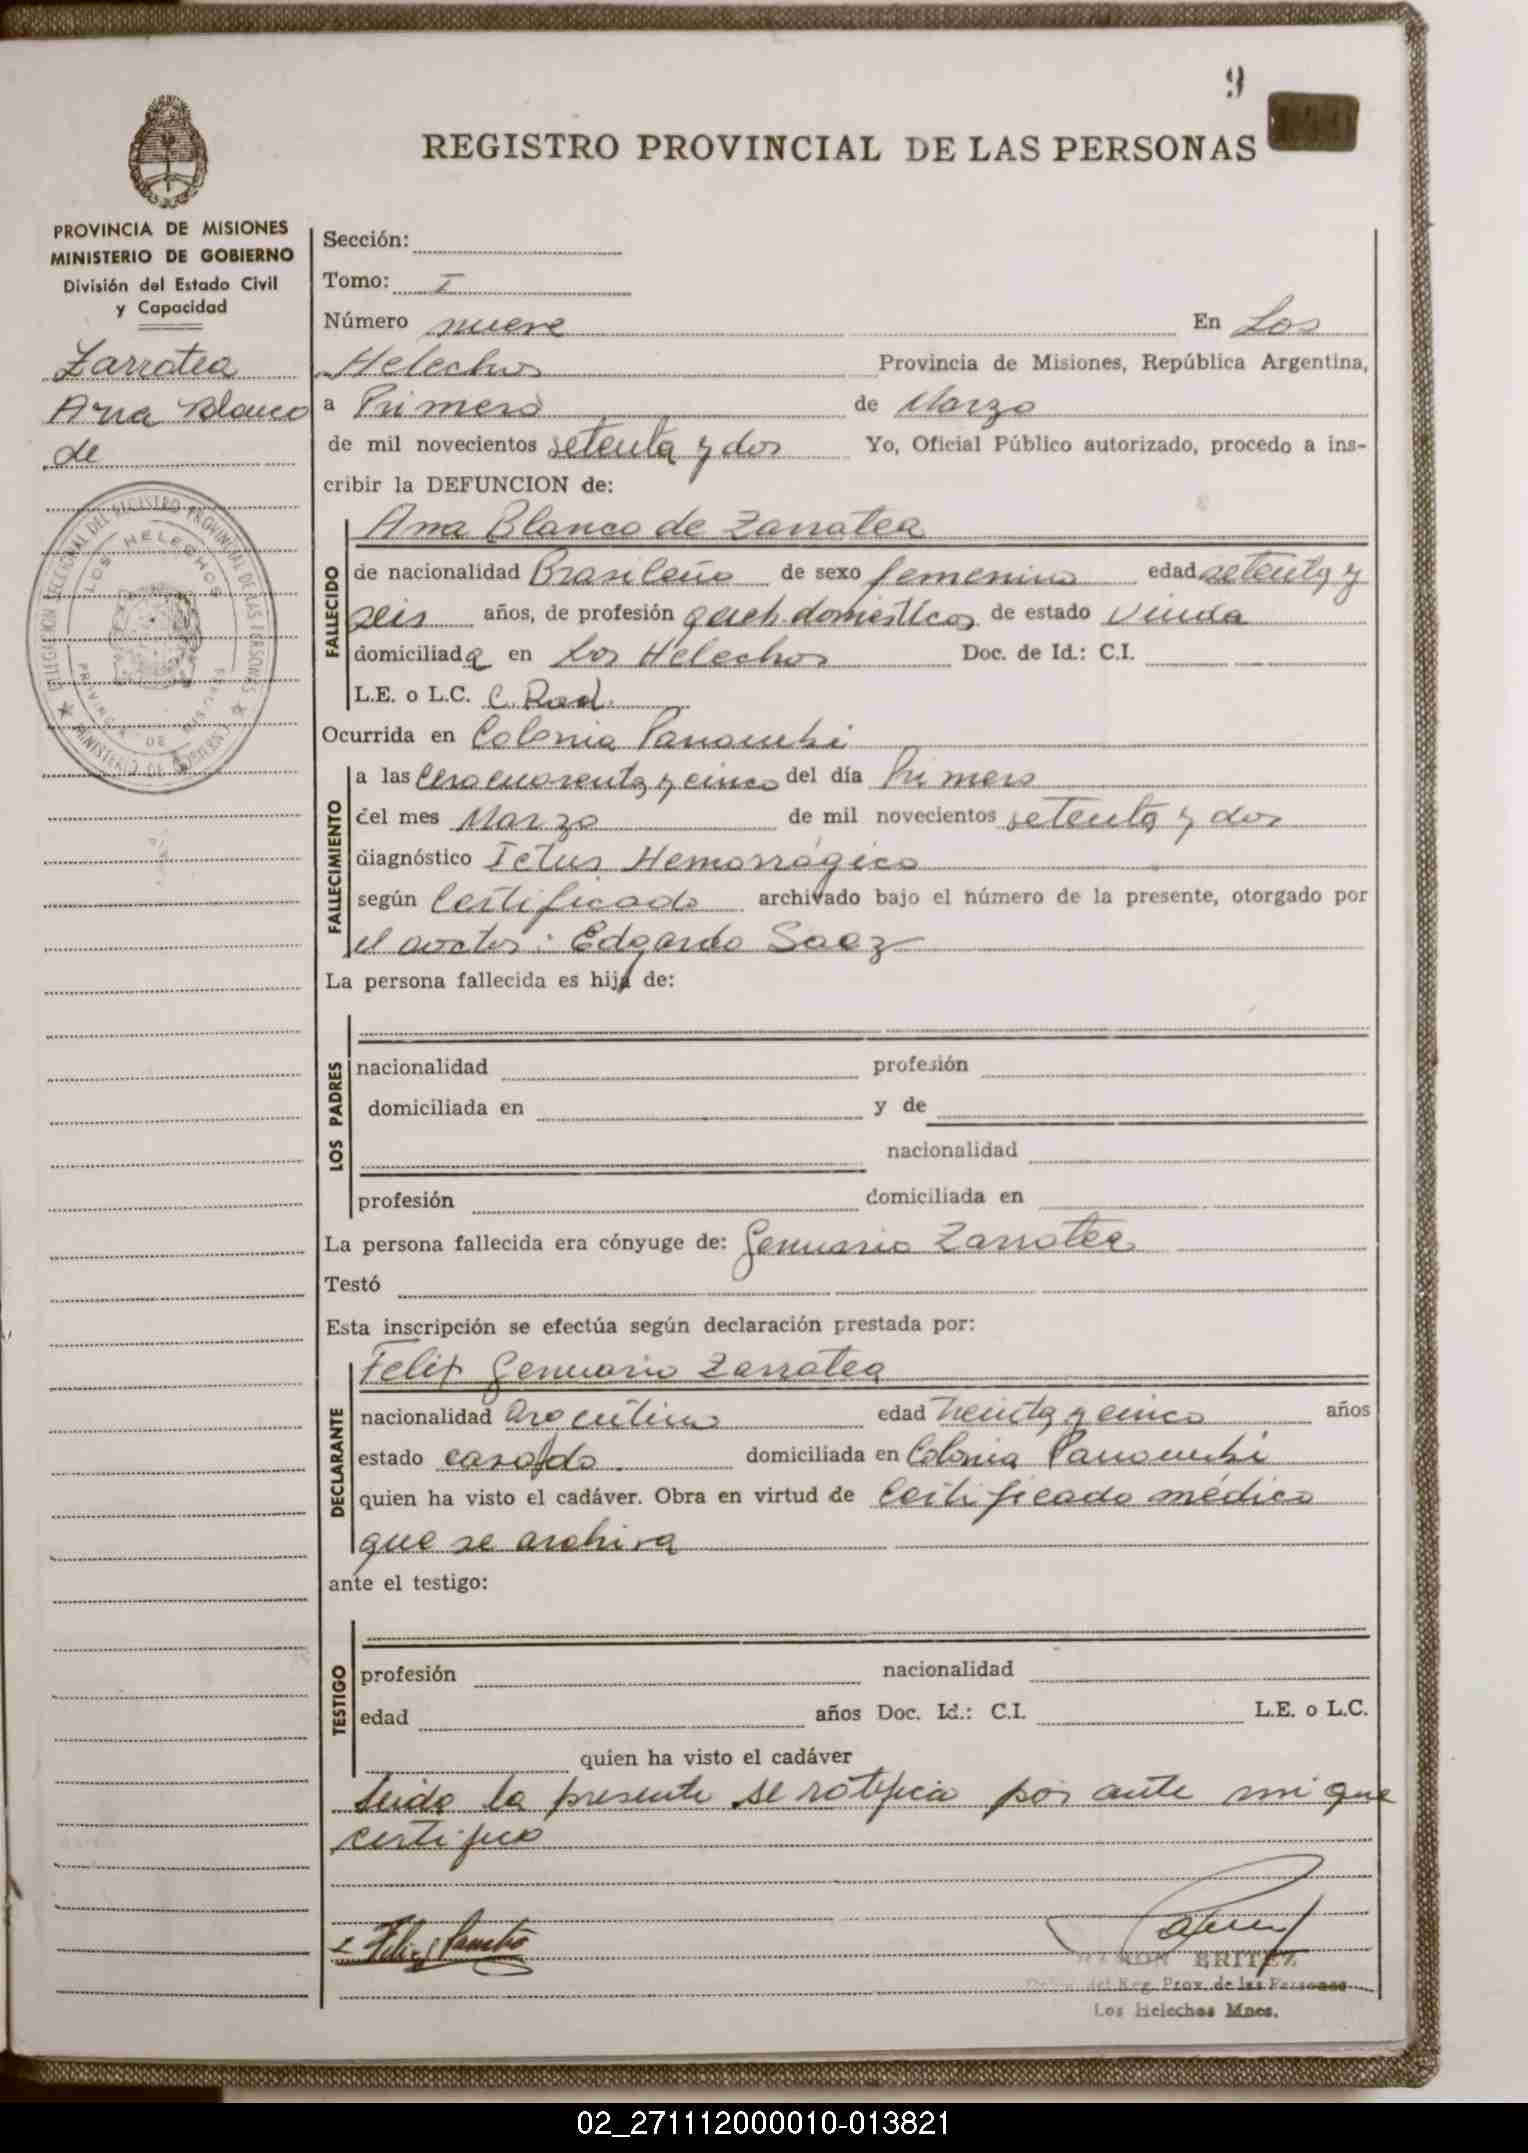 9
REGISTRO PROVINCIAL DE LAS PERSONAS
PROVINCIA DE MISIONES
MINISTERIO DE GOBIERNO
División del Estado Civil
y Capacidad
Zarratea
Ana Blanco
de
DELEGACION SECCIONAL DEL REGISTRO PROVINCIAL DE LAS PERSONAS
LOS HELECHOS
PROVINCIA DE MISIONES
MINISTERIO DE GOBIERNO
Sección:
Tomo: I
Número nueve En Los
Helechos Provincia de Misiones, República Argentina,
a Primero de Marzo
de mil novecientos setenta y dos Yo, Oficial Público autorizado, procedo a ins-
cribir la DEFUNCION de:
FALLECIDO
Ana Blanco de Zarratea
de nacionalidad Brasileña de sexo femenino edad setenta y
seis años, de profesión queh. domesticos de estado Viuda
domiciliada en Los Helechos Doc. de Id.: C.I.
L.E. o L.C. C. Rad.
Ocurrida en Colonia Panambi
FALLECIMIENTO
a las Cero cuarenta y cinco del día Primero
del mes Marzo de mil novecientos setenta y dos
diagnóstico Ictus Hemorrágico
según Certificado archivado bajo el número de la presente, otorgado por
el doctor: Edgardo Saez
La persona fallecida es hija de:
LOS PADRES
nacionalidad profesión
domiciliada en y de
nacionalidad
profesión domiciliada en
La persona fallecida era cónyuge de: Genuario Zarratea
Testó
Esta inscripción se efectúa según declaración prestada por:
DECLARANTE
Felix Genuario Zarratea
nacionalidad Argentino edad Treinta y cinco años
estado casado domiciliada en Colonia Panambi
quien ha visto el cadáver. Obra en virtud de Certificado médico
que se archiva
ante el testigo:
TESTIGO
profesión nacionalidad
edad años Doc. Id.: C.I. L.E. o L.C.
quien ha visto el cadáver
Leida la presente se ratifica por ante mi que
certifico
RAMON BRITEZ
del Reg. Prov. de las Personas
Los Helechos Mnes.
02_271112000010-013821